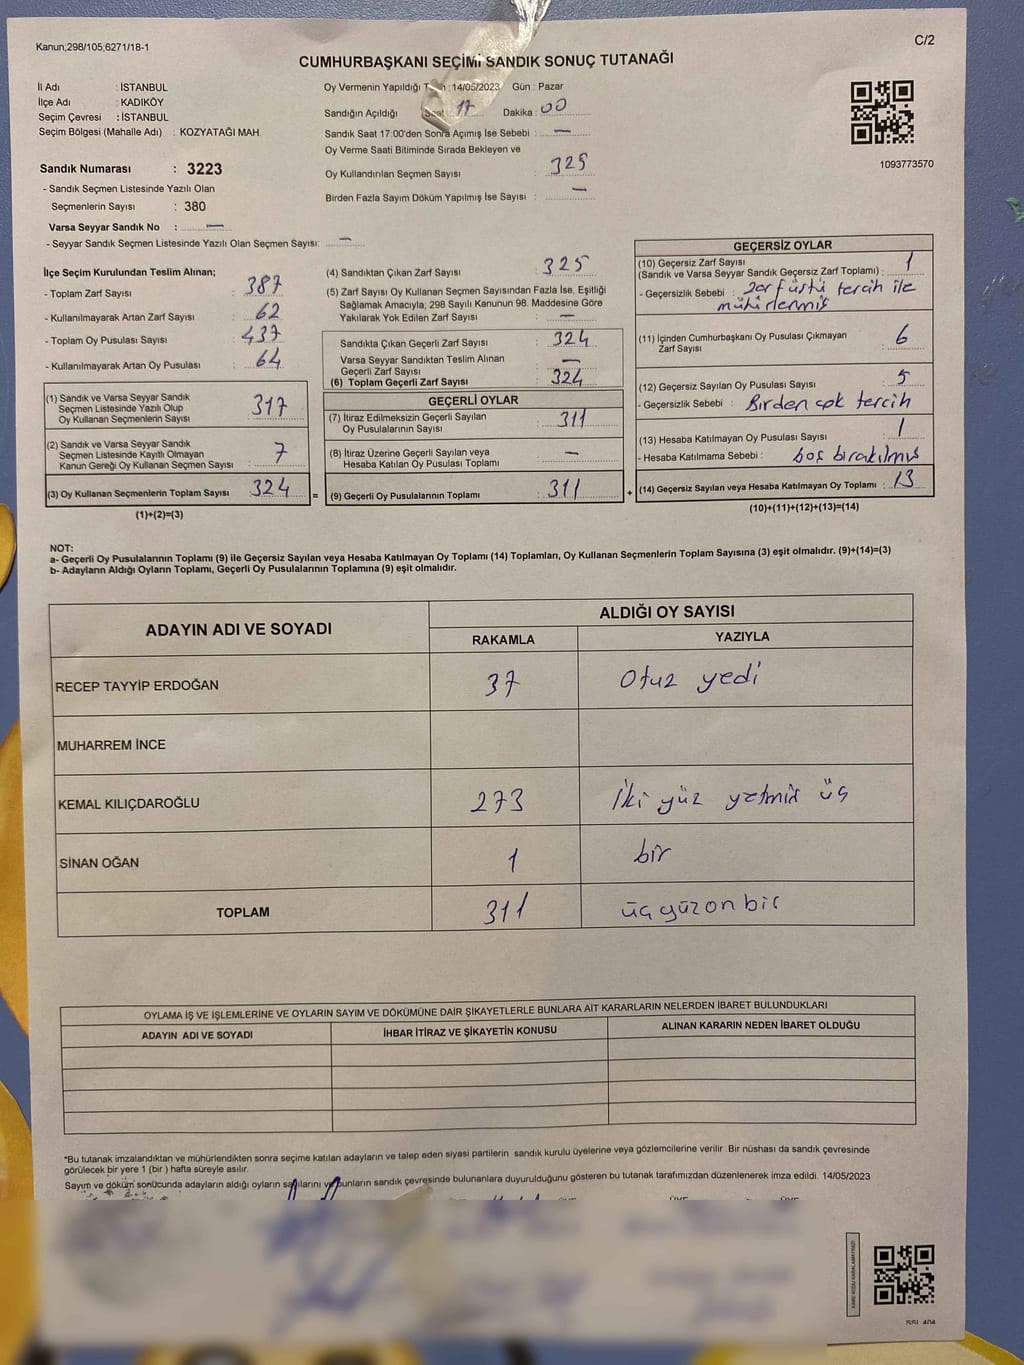 Kanun;298/105;6271/18-1
C/2
CUMHURBAŞKANI SEÇİMİ SANDIK SONUÇ TUTANAĞI
İl Adı : İSTANBUL
İlçe Adı : KADIKÖY
Seçim Çevresi : İSTANBUL
Seçim Bölgesi (Mahalle Adı) : KOZYATAĞI MAH.
Sandık Numarası : 3223
- Sandık Seçmen Listesinde Yazılı Olan
Seçmenlerin Sayısı : 380
Varsa Seyyar Sandık No : —
- Seyyar Sandık Seçmen Listesinde Yazılı Olan Seçmen Sayısı: —
Oy Vermenin Yapıldığı :14/05/2023 Gün : Pazar
Sandığın Açıldığı Saat : 17 Dakika : 00
Sandık Saat 17:00'den Sonra Açımış İse Sebebi : —
Oy Verme Saati Bitiminde Sırada Bekleyen ve
Oy Kullandırılan Seçmen Sayısı : 325
Birden Fazla Sayım Döküm Yapılmış İse Sayısı : —
1093773570
İlçe Seçim Kurulundan Teslim Alınan;
- Toplam Zarf Sayısı : 387
- Kullanılmayarak Artan Zarf Sayısı : 62
- Toplam Oy Pusulası Sayısı : 437
- Kullanılmayarak Artan Oy Pusulası : 64
(1) Sandık ve Varsa Seyyar Sandık
Seçmen Listesinde Yazılı Olup
Oy Kullanan Seçmenlerin Sayısı : 317
(2) Sandık ve Varsa Seyyar Sandık
Seçmen Listesinde Kayıtlı Olmayan
Kanun Gereği Oy Kullanan Seçmen Sayısı : 7
(3) Oy Kullanan Seçmenlerin Toplam Sayısı : 324 =
(1)+(2)=(3)
(4) Sandıktan Çıkan Zarf Sayısı : 325
(5) Zarf Sayısı Oy Kullanan Seçmen Sayısından Fazla İse, Eşitliği
Sağlamak Amacıyla, 298 Sayılı Kanunun 98. Maddesine Göre
Yakılarak Yok Edilen Zarf Sayısı : —
Sandıkta Çıkan Geçerli Zarf Sayısı : 324
Varsa Seyyar Sandıktan Teslim Alınan
Geçerli Zarf Sayısı : —
(6) Toplam Geçerli Zarf Sayısı : 324
GEÇERLİ OYLAR
(7) İtiraz Edilmeksizin Geçerli Sayılan
Oy Pusulalarının Sayısı : 311
(8) İtiraz Üzerine Geçerli Sayılan veya
Hesaba Katılan Oy Pusulası Toplamı : —
(9) Geçerli Oy Pusulalarının Toplamı : 311 +
GEÇERSİZ OYLAR
(10) Geçersiz Zarf Sayısı
(Sandık ve Varsa Seyyar Sandık Geçersiz Zarf Toplamı) : 1
- Geçersizlik Sebebi : Zarf üstü tercih ile
mühürlenmiş
(11) İçinden Cumhurbaşkanı Oy Pusulası Çıkmayan
Zarf Sayısı : 6
(12) Geçersiz Sayılan Oy Pusulası Sayısı : 5
- Geçersizlik Sebebi : Birden çok tercih
(13) Hesaba Katılmayan Oy Pusulası Sayısı : 1
- Hesaba Katılmama Sebebi : boş bırakılmış
(14) Geçersiz Sayılan veya Hesaba Katılmayan Oy Toplamı : 13
(10)+(11)+(12)+(13)=(14)
NOT:
a- Geçerli Oy Pusulalarının Toplamı (9) ile Geçersiz Sayılan veya Hesaba Katılmayan Oy Toplamı (14) Toplamları, Oy Kullanan Seçmenlerin Toplam Sayısına (3) eşit olmalıdır. (9)+(14)=(3)
b- Adayların Aldığı Oyların Toplamı, Geçerli Oy Pusulalarının Toplamına (9) eşit olmalıdır.
ADAYIN ADI VE SOYADI ALDIĞI OY SAYISI
RAKAMLA YAZIYLA
RECEP TAYYİP ERDOĞAN 37 Otuz yedi
MUHARREM İNCE
KEMAL KILIÇDAROĞLU 273 İki yüz yetmiş üç
SİNAN OĞAN 1 bir
TOPLAM 311 üç yüz on bir
OYLAMA İŞ VE İŞLEMLERİNE VE OYLARIN SAYIM VE DÖKÜMÜNE DAİR ŞİKAYETLERLE BUNLARA AİT KARARLARIN NELERDEN İBARET BULUNDUKLARI
ADAYIN ADI VE SOYADI İHBAR İTİRAZ VE ŞİKAYETİN KONUSU ALINAN KARARIN NEDEN İBARET OLDUĞU
*Bu tutanak imzalandıktan ve mühürlendikten sonra seçime katılan adayların ve talep eden siyasi partilerin sandık kurulu üyelerine veya gözlemcilerine verilir .Bir nüshası da sandık çevresinde
görülecek bir yere 1 (bir ) hafta süreyle asılır.
Sayım ve döküm sonucunda adayların aldığı oyların sayılarını ve bunların sandık çevresinde bulunanlara duyurulduğunu gösteren bu tutanak tarafımızdan düzenlenerek imza edildi. 14/05/2023